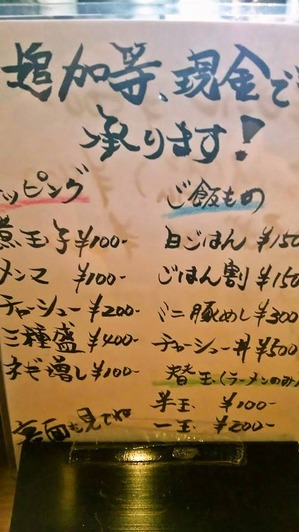 追加等、現金で
承ります!
ッピング
煮玉子 ¥100-
メンマ ¥100-
チャーシュー ¥200-
三種盛 ¥400-
ねぎ増し ¥100-
裏面も見てね
ご飯もの
白ごはん ¥150
ごはん割 ¥150
ミニ豚めし ¥300
チャーシュー丼 ¥500
替玉(ラーメンのみ)
半玉 ¥100-
一玉 ¥200-